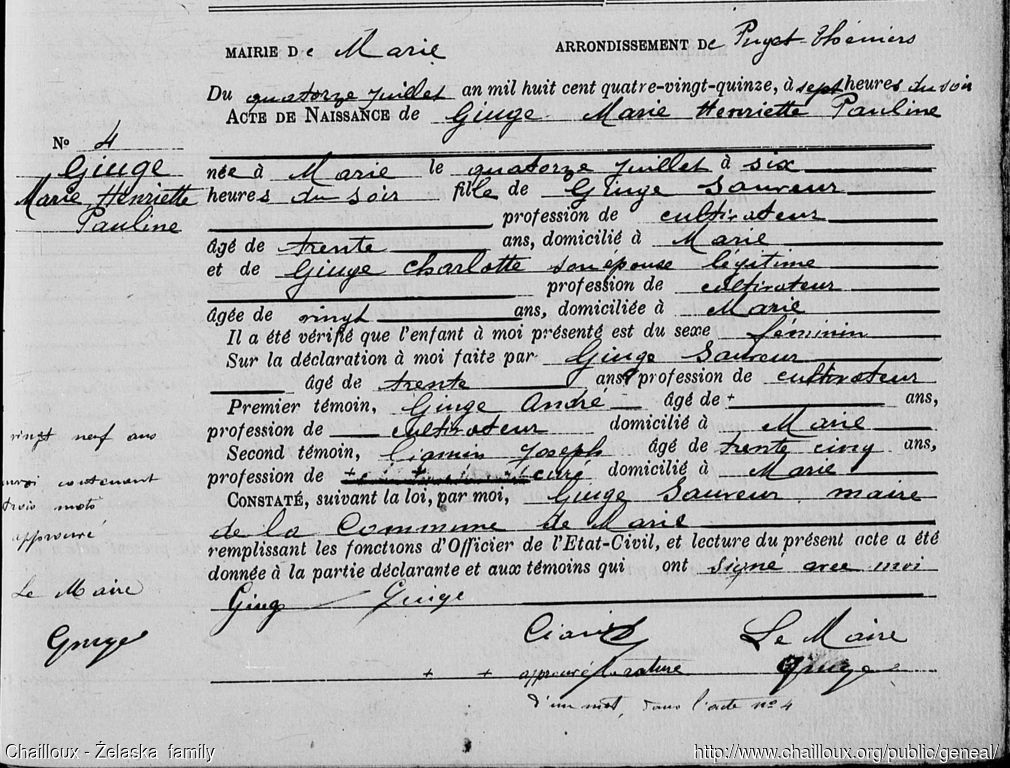 MAIRIE De Marie ARRONDISSEMENT De Puget-Théniers
Du quatorze juillet an mil huit cent quatre-vingt-quinze, à sept heures du soir
ACTE DE NAISSANCE de Giuge Marie Henriette Pauline
N° 4
Giuge
Marie Henriette
Pauline
née à Marie le quatorze juillet à six
heures du soir fille de Giuge Sauveur
profession de cultivateur
âgé de trente ans, domicilié à Marie
et de Giuge Charlotte son épouse légitime
profession de cultivateur
âgée de vingt ans, domiciliée à Marie
Il a été vérifié que l'enfant à moi présenté est du sexe féminin
Sur la déclaration à moi faite par Giuge Sauveur
âgé de trente ans, profession de cultivateur
Premier témoin, Giuge André âgé de + ans,
profession de cultivateur domicilié à Marie
Second témoin, Ciamin Joseph âgé de trente cinq ans,
profession de curé domicilié à Marie
CONSTATÉ, suivant la loi, par moi, Giuge Sauveur maire
de la Commune de Marie
remplissant les fonctions d'Officier de l'Etat-Civil, et lecture du présent acte a été
donnée à la partie déclarante et aux témoins qui ont signé avec moi
vingt neuf ans
renvoi contenant
trois mots
approuvé
Le Maire
Giuge
Giuge Giuge
Le Maire
+ + approuvé la rature Giuge
d'un mot, dans l'acte n° 4
Chailloux - Żelaska family
http://www.chailloux.org/public/geneal/